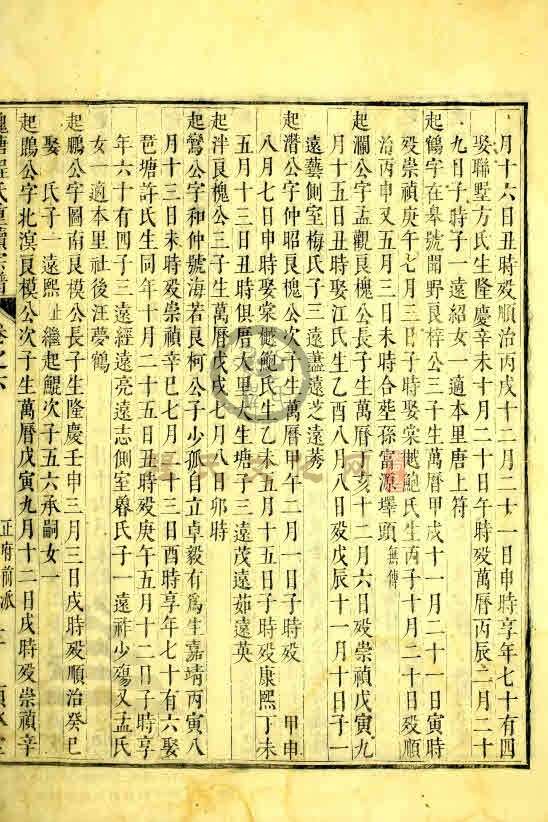 月十六日丑時順治丙戌十二月二十一日申時享年七十有四
娶聯墅方氏生隆慶辛未十月二十日午時歿萬曆丙辰二月二十
九日子時子一遠紹女一適本里唐上符
起鶴字在皋號閒野良梓公三子生萬曆甲戌十一月二十一日寅時
歿崇禎庚午七月三日子時娶棠樾鮑氏生丙子十月二十日歿順
治丙申又五月三日未時合葬孫富源墿頭無傳
起瀾公字孟觀良槐公長子生萬曆 亥十二月六日歿崇禎戊寅九
月十五日丑時娶江氏生乙酉八月八日歿戊辰十一月十日子一
遠藝側室梅氏子三遠藎遠之遠
起潛公字仲昭良槐公次子生萬曆甲午二月一日子時歿 甲申
八月七日申時娶棠樾鮑氏生乙未五月十五日子時歿康熙丁未
五月十三日丑時俱曆火里人生塘子三遠茂遠茹遠英
起泮良槐公三子生萬曆 戌七月八日卯時
起鸞公字和仲號海若良柯公子少孤自立卓毅有為生嘉靖丙寅八
月十三日未時歿崇禎辛巳七月十三日酉時享年七十有六娶
琶塘許氏生同年十月二十五日丑時歿庚午五月十二日子時享
年六十有四子三遠經遠亮遠志側室 氏子一遠祚少殤又孟氏
女一適本里社後汪夢鶴
起鵬公字圖南良模公長子生隆慶壬申三月三日戌時歿順治癸巳
娶 氏子一遠熙 繼起鯤次子五六承嗣女一
起鵾公字北溟良模公次子生萬曆戊寅九月十二日戌時歿崇禎辛
槐塘程氏重續宗譜 卷之六 正府前派